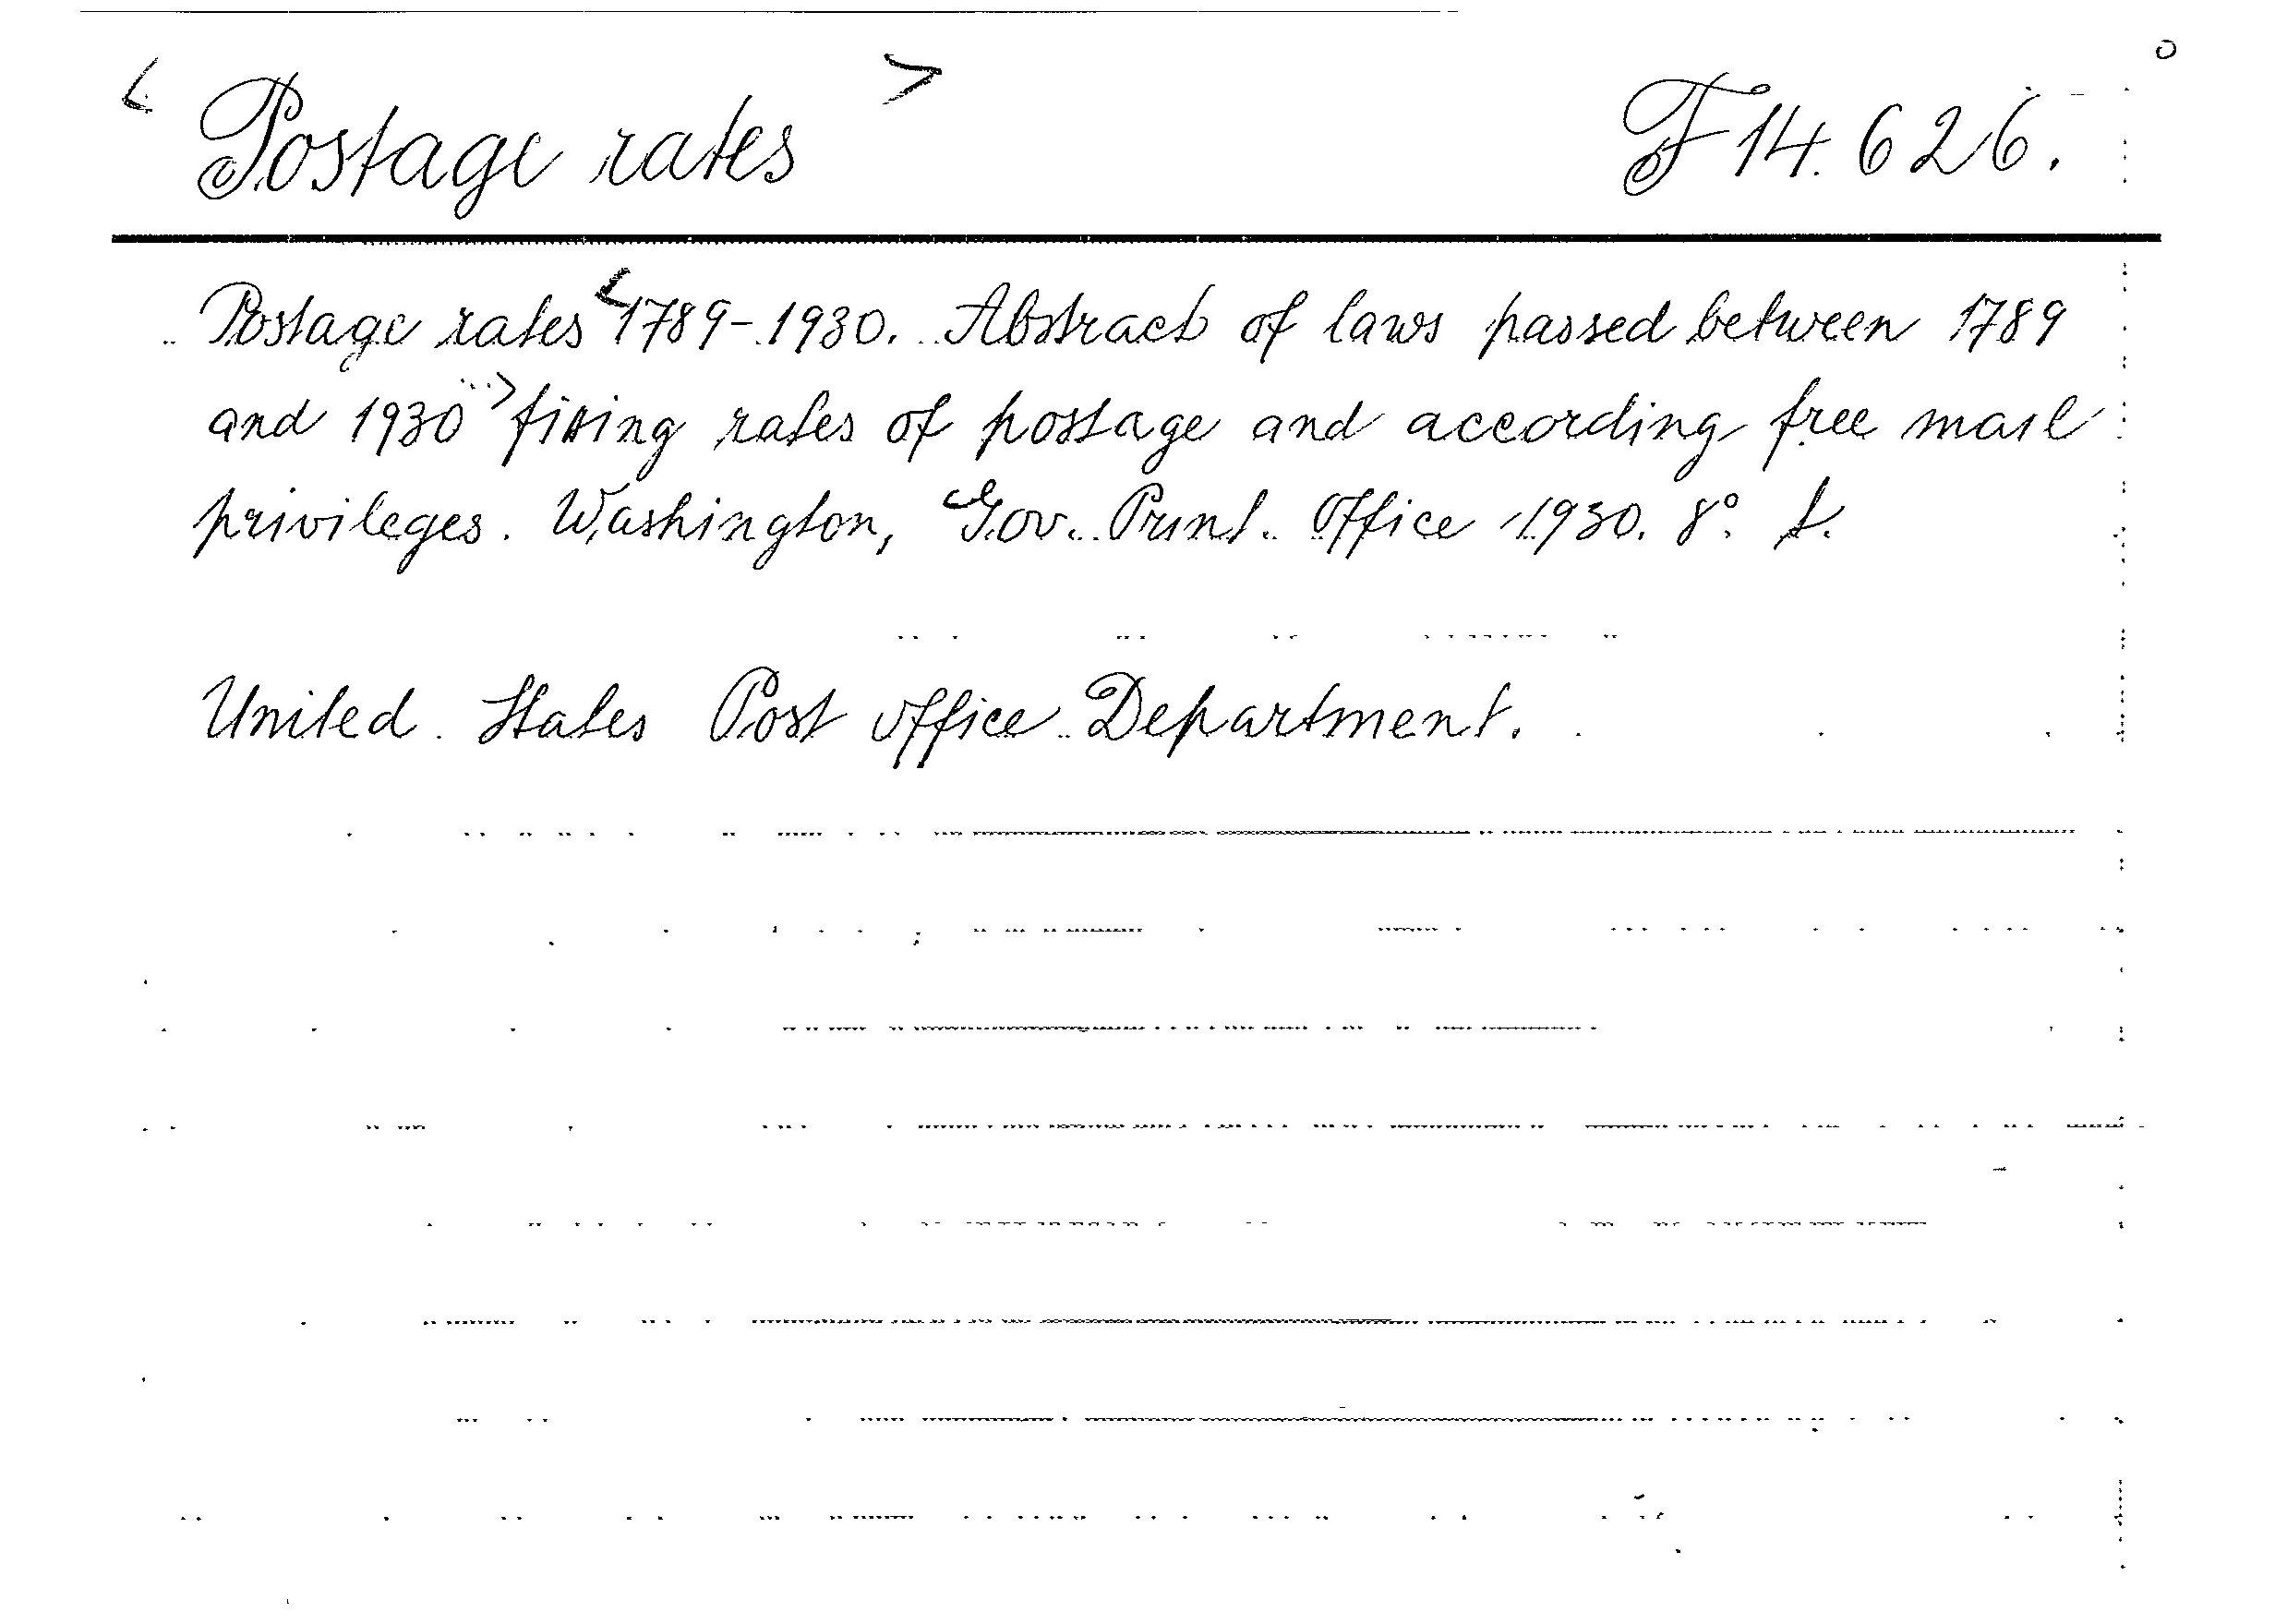 < Postage rates > F 14.626.
Postage rates <1789-1930. Abstract of laws passed between 1789
and 1930> fixing rates of postage and according free mail
privileges. Washington, Gov. Print. Office 1930. 8°.
United States Post office Department.